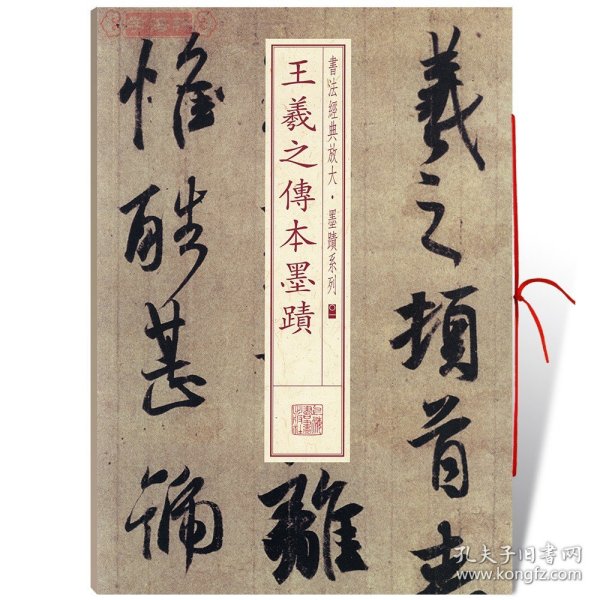 羲之頓首
書法經典放大・墨蹟系列 〇一
王羲之傳本墨蹟
離
惟酷甚號
孔夫子旧书网
www.kongfz.com